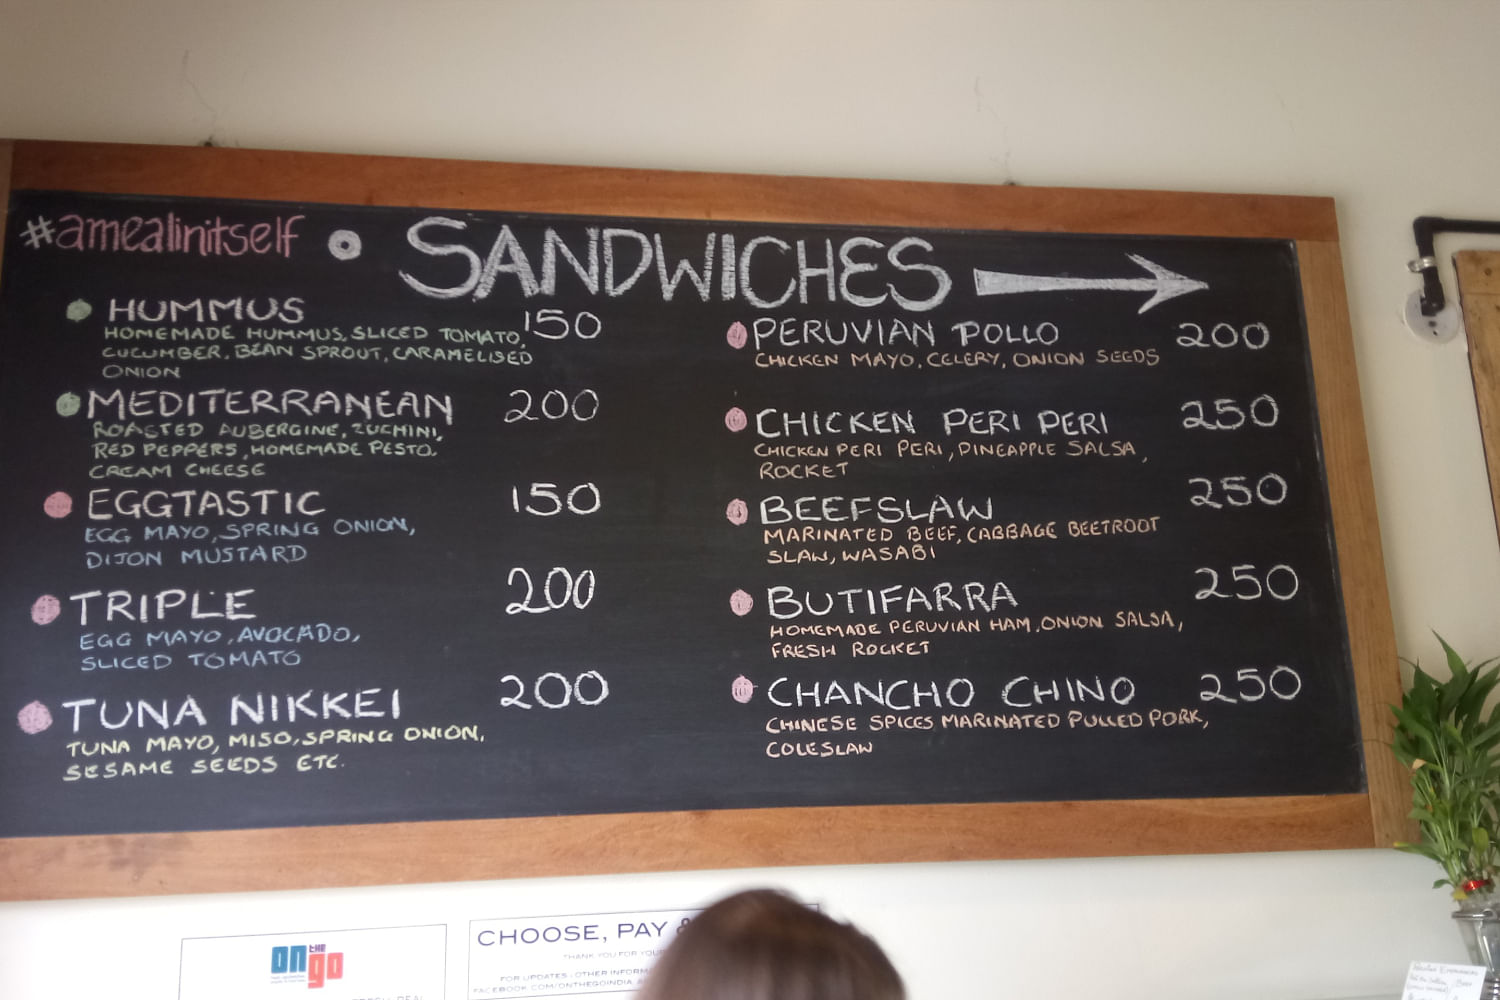 #amealinitself SANDWICHES
HUMMUS 150
HOMEMADE HUMMUS, SLICED TOMATO,
CUCUMBER, BEAN SPROUT, CARAMELISED
ONION
MEDITERRANEAN 200
ROASTED AUBERGINE, ZUCHINI,
RED PEPPERS, HOMEMADE PESTO.
CREAM CHEESE
EGGTASTIC 150
EGG MAYO, SPRING ONION,
DIJON MUSTARD
TRIPLE 200
EGG MAYO, AVOCADO,
SLICED TOMATO
TUNA NIKKEI 200
TUNA MAYO, MISO, SPRING ONION,
SESAME SEEDS ETC.
PERUVIAN POLLO 200
CHICKEN MAYO, CELERY, ONION SEEDS
CHICKEN PERI PERI 250
CHICKEN PERI PERI, PINEAPPLE SALSA,
ROCKET
BEEFSLAW 250
MARINATED BEEF, CABBAGE BEETROOT
SLAW, WASABI
BUTIFARRA 250
HOMEMADE PERUVIAN HAM, ONION SALSA,
FRESH ROCKET
CHANCHO CHINO 250
CHINESE SPICES MARINATED PULLED PORK,
COLESLAW
on THE go
CHOOSE, PAY &
THANK YOU FOR YOUR
FOR UPDATES, OTHER
FACEBOOK.COM/ONTHEGOINDIA